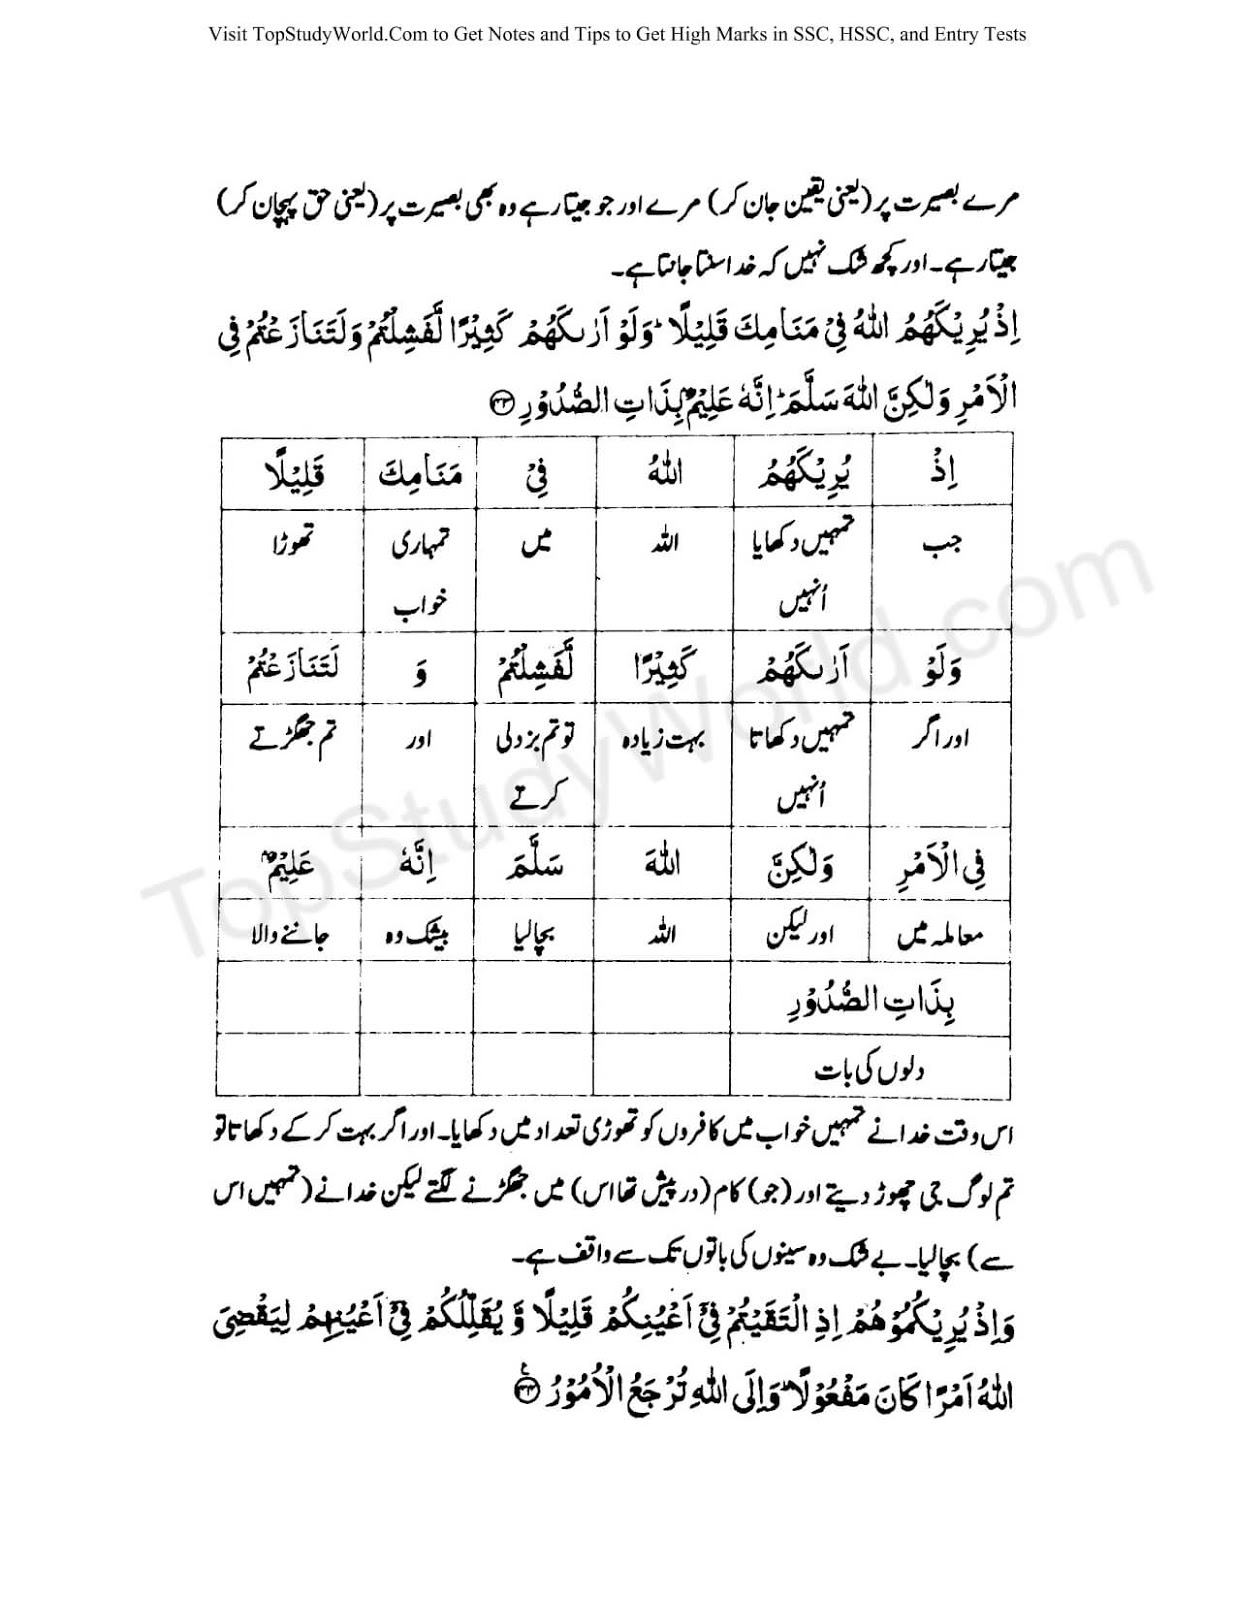 Visit TopStudyWorld.Com to Get Notes and Tips to Get High Marks in SSC, HSSC, and Entry Tests
مرے بصیرت پر (یعنی یقین جان کر) مرے اور جو جیتا رہے وہ بھی بصیرت پر (یعنی حق پہچان کر)
جیتا رہے۔ اور کچھ شک نہیں کہ خدا سنتا جانتا ہے۔
اِذْ يُرِيْكَهُمُ اللّٰهُ فِيْ مَنَامِكَ قَلِيْلًا ؕ وَلَوْ اَرٰىكَهُمْ كَثِيْرًا لَّفَشِلْتُمْ وَلَتَنَازَعْتُمْ فِى
الْاَمْرِ وَلٰكِنَّ اللّٰهَ سَلَّمَ ؕ اِنَّهٗ عَلِيْمٌۢ بِذَاتِ الصُّدُوْرِ ۝۴۳
اِذْ يُرِيْكَهُمُ اللّٰهُ فِيْ مَنَامِكَ قَلِيْلًا
جب تمہیں دکھایا اللہ میں تمہاری تھوڑا
اُنہیں خواب
وَلَوْ اَرٰىكَهُمْ كَثِيْرًا لَّفَشِلْتُمْ وَ لَتَنَازَعْتُمْ
اور اگر تمہیں دکھاتا بہت زیادہ تو تم بزدلی اور تم جھگڑتے
اُنہیں کرتے
فِى الْاَمْرِ وَلٰكِنَّ اللّٰهَ سَلَّمَ اِنَّهٗ عَلِيْمٌۢ
معاملہ میں اور لیکن اللہ بچالیا بیشک وہ جاننے والا
بِذَاتِ الصُّدُوْرِ
دلوں کی بات
اس وقت خدا نے تمہیں خواب میں کافروں کو تھوڑی تعداد میں دکھایا۔ اور اگر بہت کر کے دکھاتا تو
تم لوگ جی چھوڑ دیتے اور (جو) کام (درپیش تھا اس) میں جھگڑنے لگتے لیکن خدا نے (تمہیں اس
سے) بچالیا۔ بے شک وہ سینوں کی باتوں تک سے واقف ہے۔
وَاِذْ يُرِيْكُمُوْهُمْ اِذِ الْتَقَيْتُمْ فِيْٓ اَعْيُنِكُمْ قَلِيْلًا وَّ يُقَلِّلُكُمْ فِيْٓ اَعْيُنِهِمْ لِيَقْضِىَ
اللّٰهُ اَمْرًا كَانَ مَفْعُوْلًا ؕ وَاِلَى اللّٰهِ تُرْجَعُ الْاُمُوْرُ ۝۴۴
TopStudyWorld.com